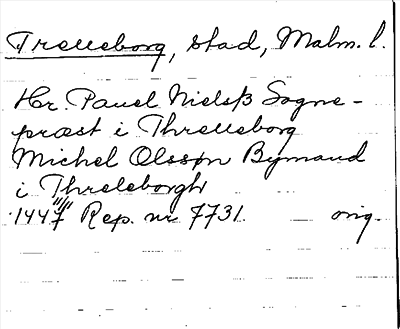 Trelleborg, stad, Malm. l.
Hr. Pauel Nielsß Sogne-
præst i Threlleborg
Michel Olssøn Bymand
i Threleborgh
1447 11/11 Rep. nr 7731. orig.